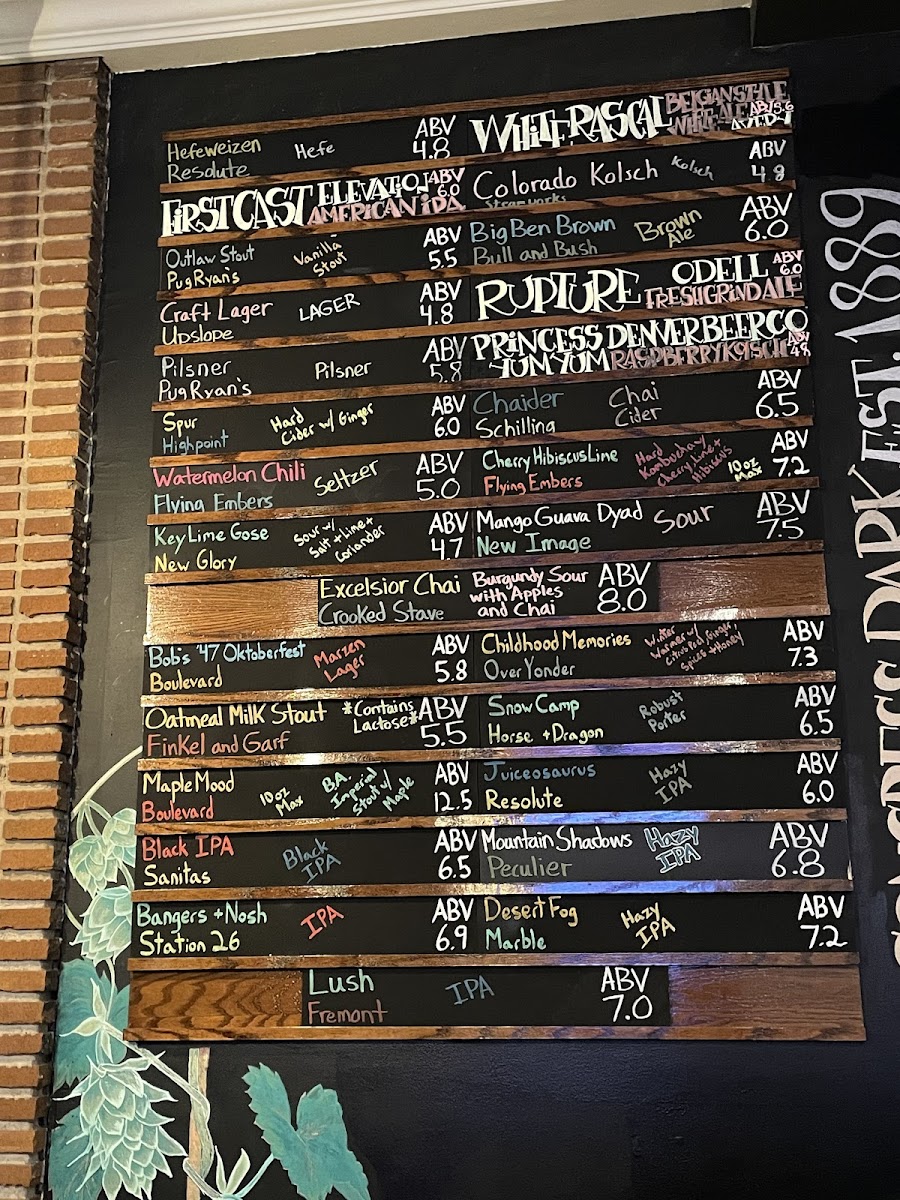 Hefeweizen Hefe ABV
Resolute 4.8
WHITE RASCAL BELGIAN STYLE
WHITE ALE ABV 5.6
AVERY
FIRST CAST ELEVATION ABV 6.0
AMERICAN IPA
Colorado Kolsch Kolsch ABV
Steamworks 4.8
Outlaw Stout Vanilla ABV
PugRyan's Stout 5.5
Big Ben Brown Brown ABV
Bull and Bush Ale 6.0
Craft Lager LAGER ABV
Upslope 4.8
RUPTURE ODELL ABV 6.0
FRESH GRIND ALE
Pilsner Pilsner ABV
PugRyan's 5.8
PRINCESS DENVER BEER CO
YUM YUM RASPBERRY KOLSCH ABV 4.8
Spur Hard ABV
Highpoint Cider w/ Ginger 6.0
Chaider Chai ABV
Schilling Cider 6.5
Watermelon Chili Seltzer ABV
Flying Embers 5.0
Cherry Hibiscus Lime Hard Kombucha w/ Cherry, Lime + Hibiscus ABV
Flying Embers 10oz Max 7.2
Key Lime Gose Sour w/ Salt + Lime + Coriander ABV
New Glory 4.7
Mango Guava Dyad Sour ABV
New Image 7.5
Excelsior Chai Burgundy Sour ABV
Crooked Stave with Apples and Chai 8.0
Bob's '47 Oktoberfest Marzen ABV
Boulevard Lager 5.8
Childhood Memories Winter Warmer w/ Citrus Peel, Ginger, Spices + Honey ABV
Over Yonder 7.3
Oatmeal Milk Stout *Contains Lactose* ABV
Finkel and Garf 5.5
Snow Camp Robust ABV
Horse + Dragon Porter 6.5
Maple Mood B.A. Imperial Stout w/ Maple ABV
Boulevard 10oz Max 12.5
Juiceosaurus Hazy ABV
Resolute IPA 6.0
Black IPA Black ABV
Sanitas IPA 6.5
Mountain Shadows Hazy ABV
Peculier IPA 6.8
Bangers + Nosh IPA ABV
Station 26 6.9
Desert Fog Hazy ABV
Marble IPA 7.2
Lush IPA ABV
Fremont 7.0
EST. 1889